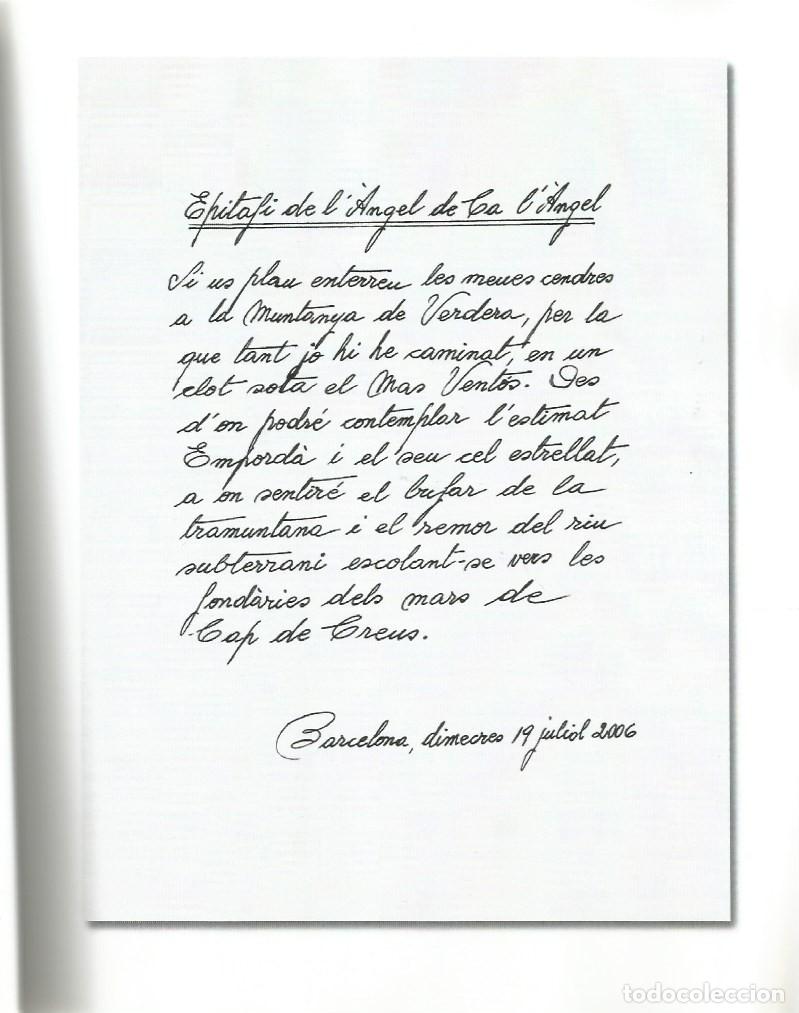 Epitafi de l'Àngel de Ca l'Àngel
Si us plau enterreu les meues cendres
a la Muntanya de Verdera, per la
que tant jo hi he caminat, en un
clot sota el Mas Ventós. Des
d'on podré contemplar l'estimat
Empordà i el seu cel estrellat,
a on sentiré el bufar de la
tramuntana i el remor del riu
subterrani escolant-se vers les
fondàries dels mars de
Cap de Creus.
Barcelona, dimecres 19 juliol 2006
todocoleccion